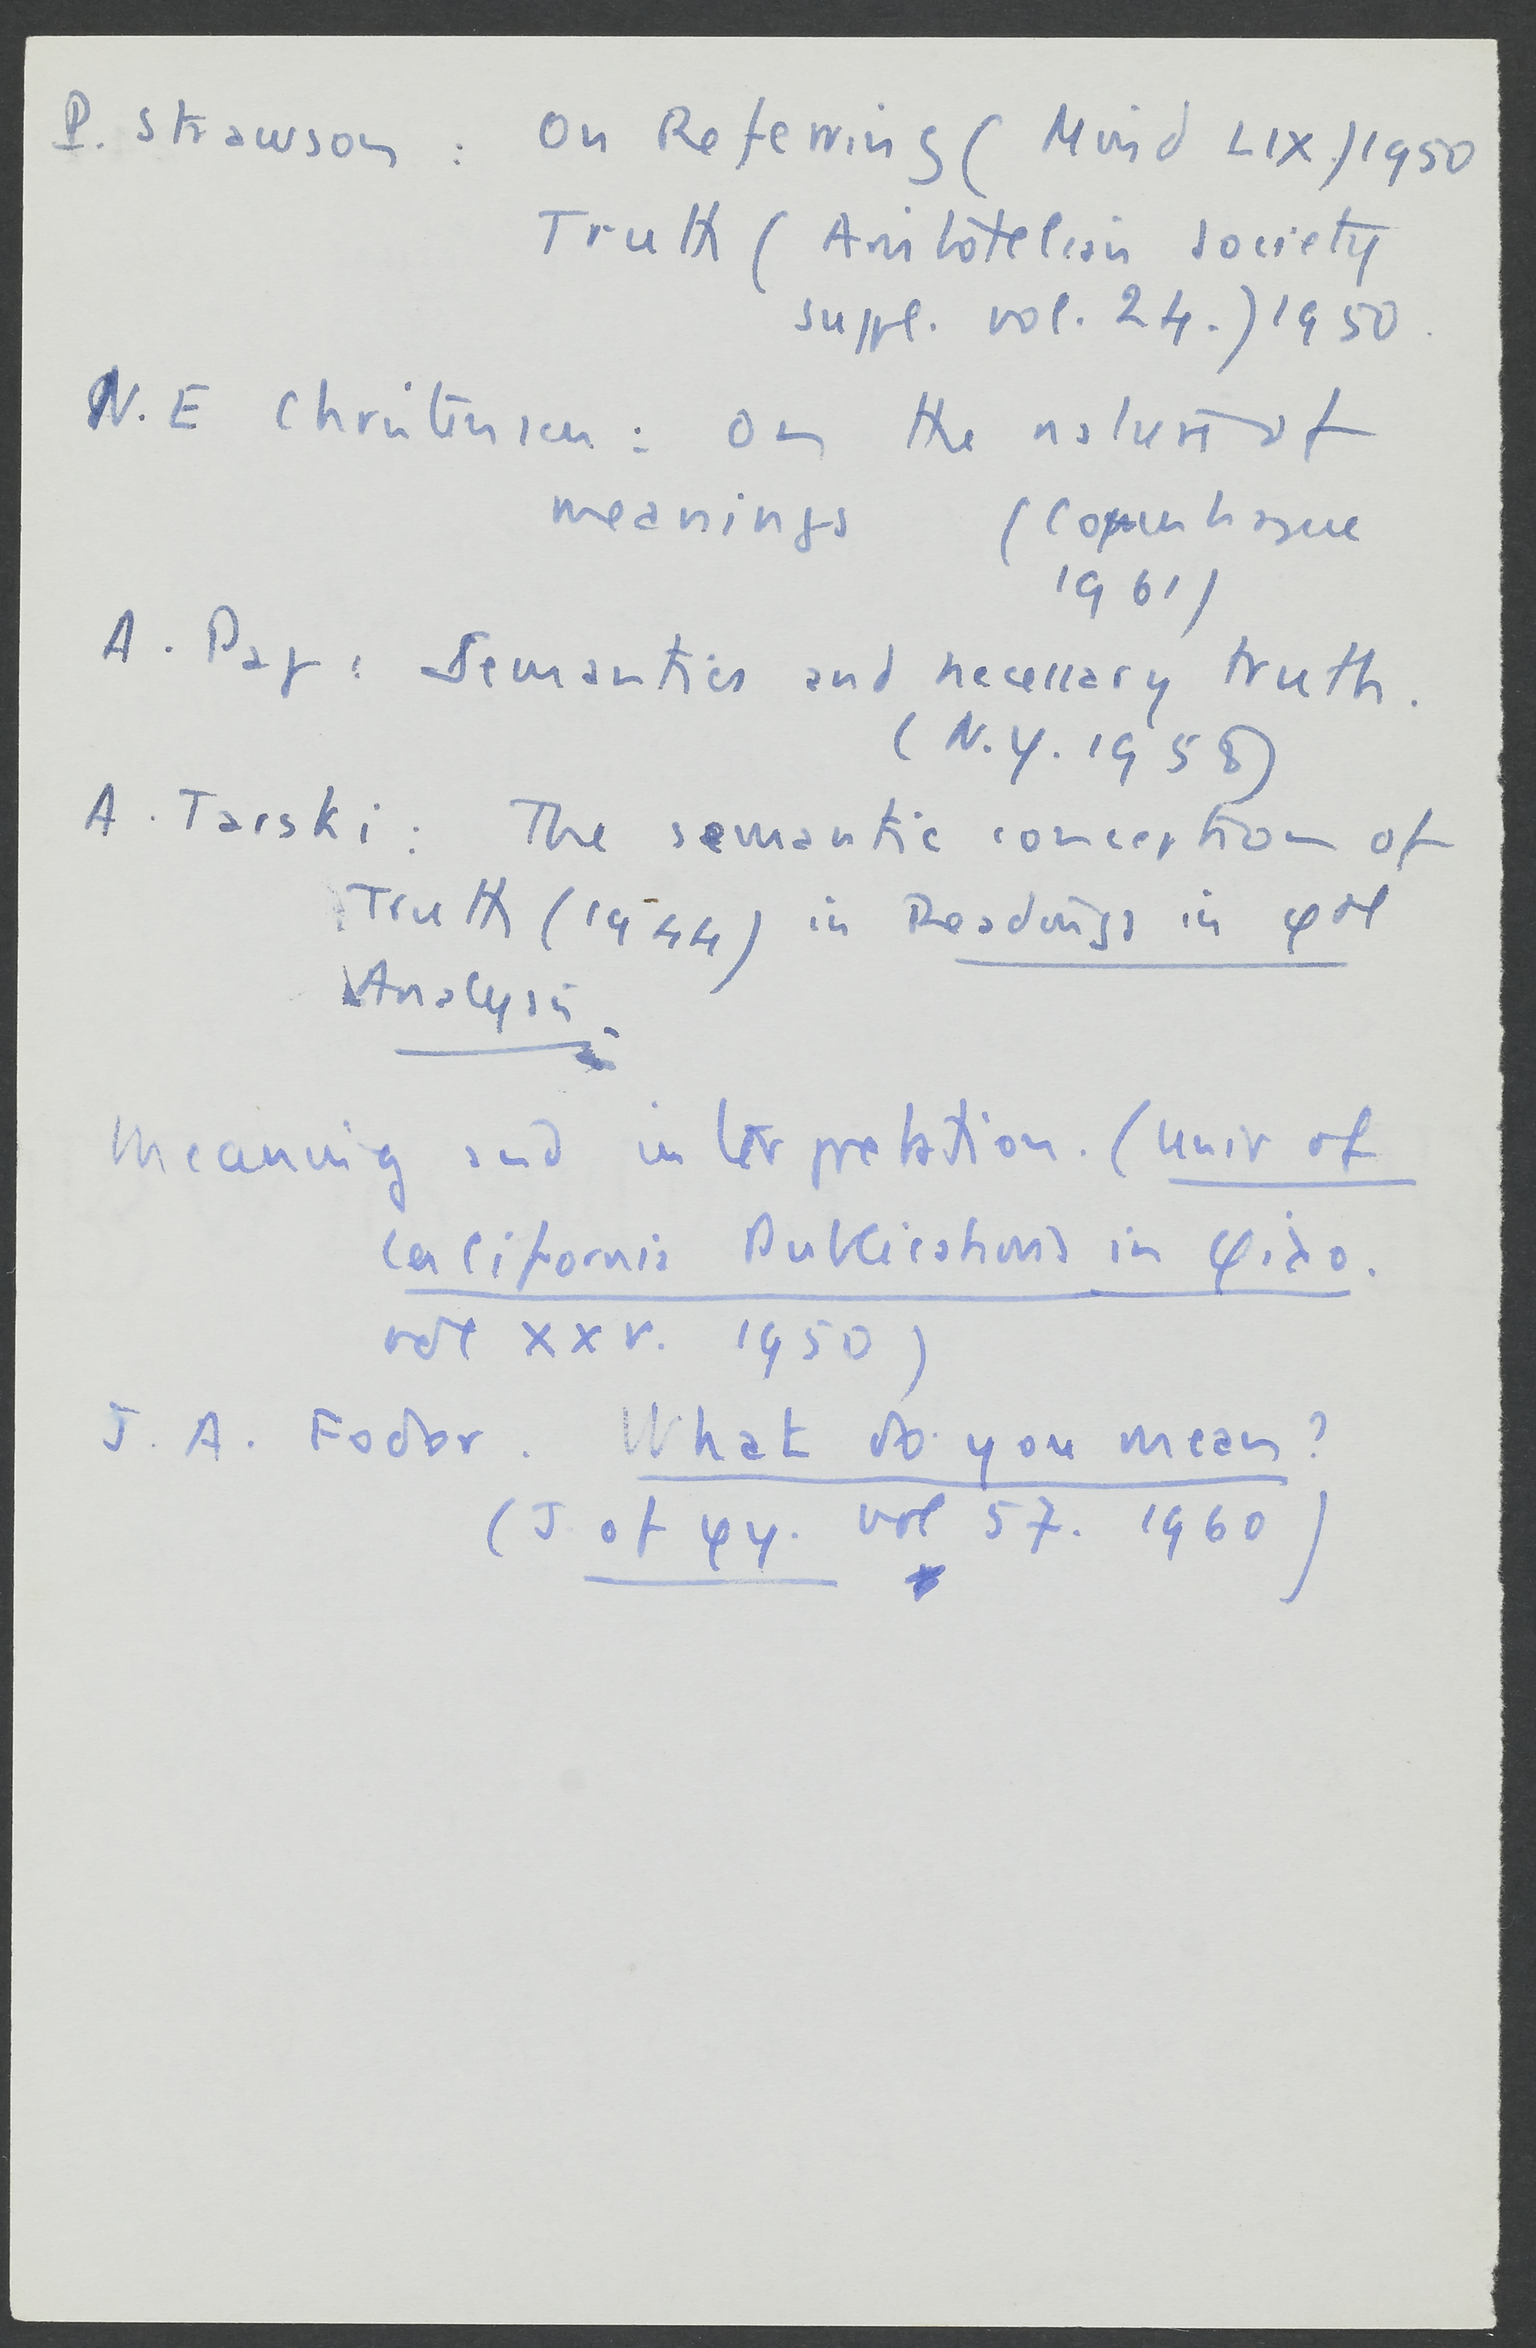 P. Strawson : On Referring ( Mind LIX) 1950
Truth ( Aristotelian Society
suppl. vol. 24.) 1950.
N. E Christensen : On the nature of
meanings (Copenhague
1961)
A. Pap : Semantics and necessary truth.
( N.Y. 1958)
A. Tarski : The semantic conception of
Truth (1944) in Readings in φcal
Analysis.
Meaning and interpretation. (Univ of
California Publications in φιλο.
vol XXV. 1950)
J. A. Fodor. What do you mean?
(J of φy. vol 57. 1960)